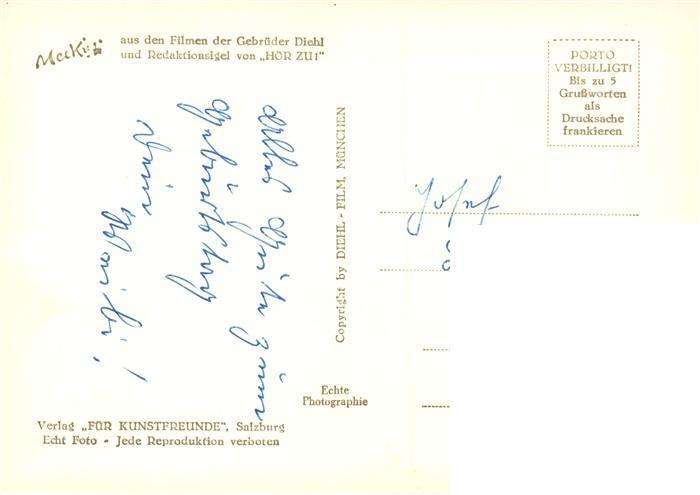 Mecki
aus den Filmen der Gebrüder Diehl
und Redaktionsigel von „HÖR ZU!"
PORTO
VERBILLIGT!
Bis zu 5
Grußworten
als
Drucksache
frankieren
Alles Gute zum
Geburtstag
Dein
!
Copyright by DIEHL - FILM, MÜNCHEN
Josef
Echte
Photographie
Verlag „FÜR KUNSTFREUNDE", Salzburg
Echt Foto - Jede Reproduktion verboten